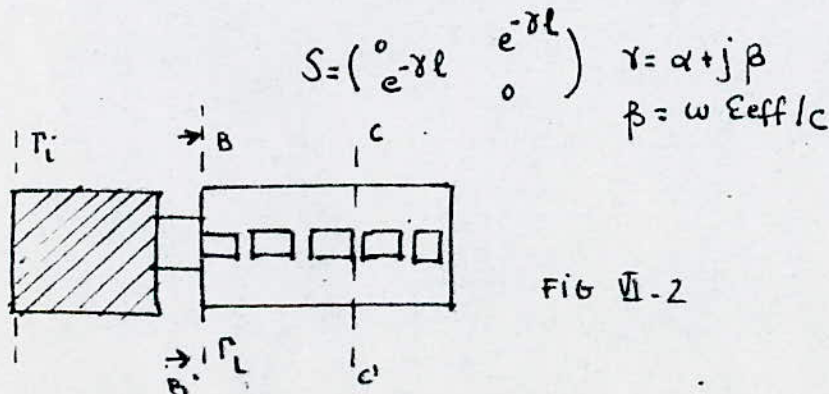 S = ( 0 e^-γℓ
e^-γℓ 0 ) γ = α + j β
β = ω εeff / c
Γi B C
FiG VI-2
B' ΓL C'